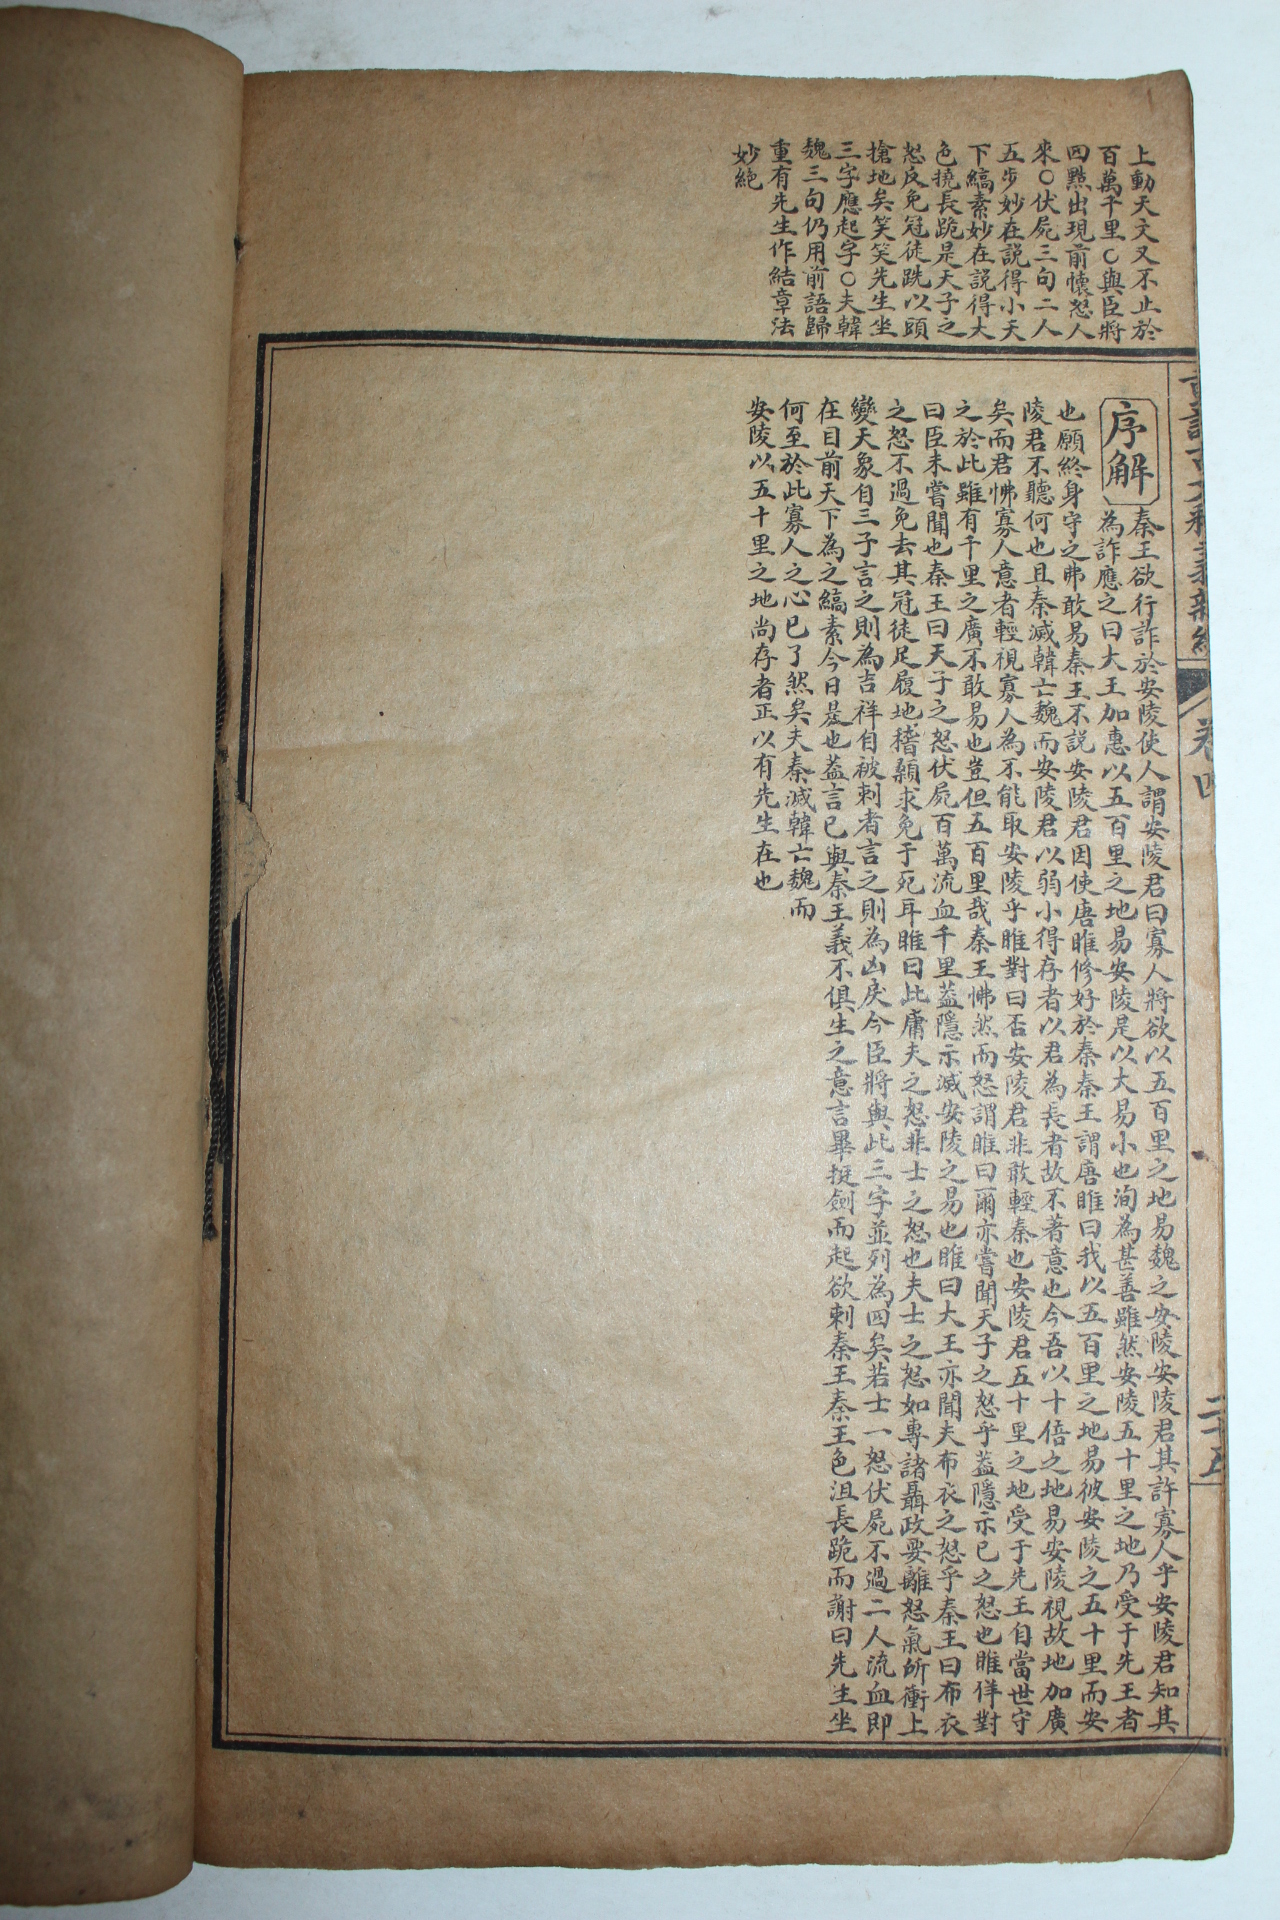 上動天文又不止於
百萬千里〇與臣將
四點出現前懷怒人
來〇伏屍三句二人
五步妙在説得小天
下縞素妙在説得大
色撓長跪是天子之
怒反免冠徒跣以頭
搶地矣笑笑先生坐
三字應起字〇夫韓
魏三句仍用前語歸
重有先生作結章法
妙絶
序解
秦王欲行詐於安陵使人謂安陵君曰寡人將欲以五百里之地易魏之安陵安陵君其許寡人乎安陵君知其
為詐應之曰大王加惠以五百里之地易安陵是以大易小也洵為甚善雖然安陵五十里之地乃受于先王者
也願終身守之弗敢易秦王不説安陵君因使唐雎修好於秦秦王謂唐雎曰我以五百里之地易彼安陵之五十里而安
陵君不聽何也且秦滅韓亡魏而安陵君以弱小得存者以君為長者故不著意也今吾以十倍之地易安陵視故地加廣
矣而君怫寡人意者輕視寡人為不能取安陵乎雎對曰否安陵君非敢輕秦也安陵君五十里之地受于先王自當世守
之於此雖有千里之廣不敢易也豈但五百里哉秦王怫然而怒謂雎曰爾亦嘗聞天子之怒乎葢隱示已之怒也雎佯對
曰臣未嘗聞也秦王曰天子之怒伏屍百萬流血千里葢隱示滅安陵之易也雎曰大王亦聞夫布衣之怒乎秦王曰布衣
之怒不過免去其冠徒足履地稽顙求免于死耳雎曰此庸夫之怒非士之怒也夫士之怒如專諸聶政要離怒氣所衝上
變天象自三子言之則為吉祥自被刺者言之則為凶戾今臣將與此三字並列為四矣若士一怒伏屍不過二人流血即
在目前天下為之縞素今日是也葢言已與秦王義不俱生之意言畢挺劍而起欲刺秦王秦王色沮長跪而謝曰先生坐
何至於此寡人之心已了然矣夫秦滅韓亡魏而
安陵以五十里之地尚存者正以有先生在也
卷四
二十五